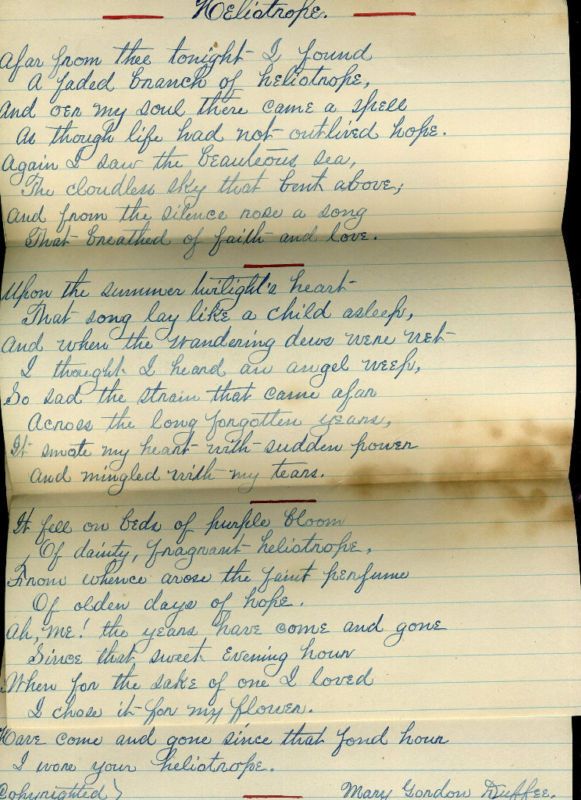 Heliotrope.
Afar from thee tonight I found
A faded branch of heliotrope,
And oer my soul there came a spell
As though life had not outlived hope.
Again I saw the beauteous sea,
The cloudless sky that bent above;
And from the silence rose a song
That breathed of faith and love.
Upon the summer twilight's heart
That song lay like a child asleep,
And when the wandering dews were wet
I thought I heard an angel weep,
So sad the strain that came afar
Across the long forgotten years,
It smote my heart with sudden power
And mingled with my tears.
It fell on beds of purple bloom
Of dainty, fragrant heliotrope,
From whence arose the faint perfume
Of olden days of hope.
Ah, me! the years have come and gone
Since that sweet Evening hour
When for the sake of one I loved
I chose it for my flower.
Have come and gone since that fond hour
I wore your heliotrope.
Copyrighted) Mary Gordon Duffee.